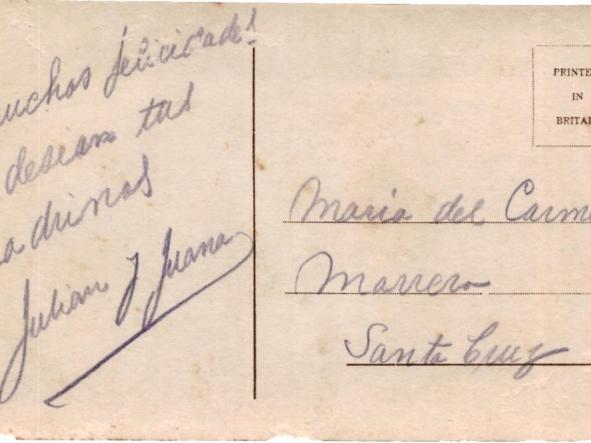 uchos felicidades
desean tus
adrinos
Julian y Juana
PRINTE
IN
BRITAI
Maria del Carme
Marrero
Santa Cruz